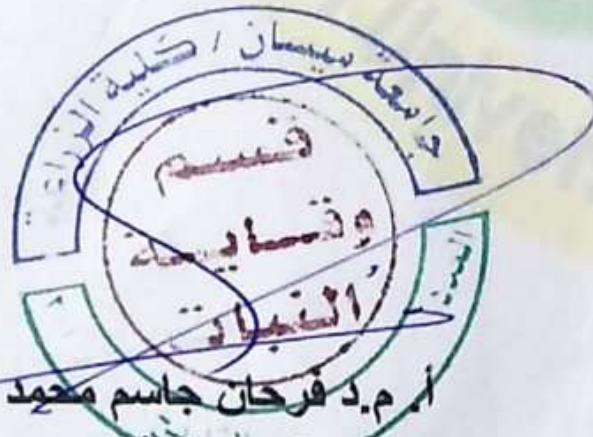 جامعة ميسان / كلية الزراعة
قسم
وقاية
النبات
أ. م.د فرحان جاسم محمد